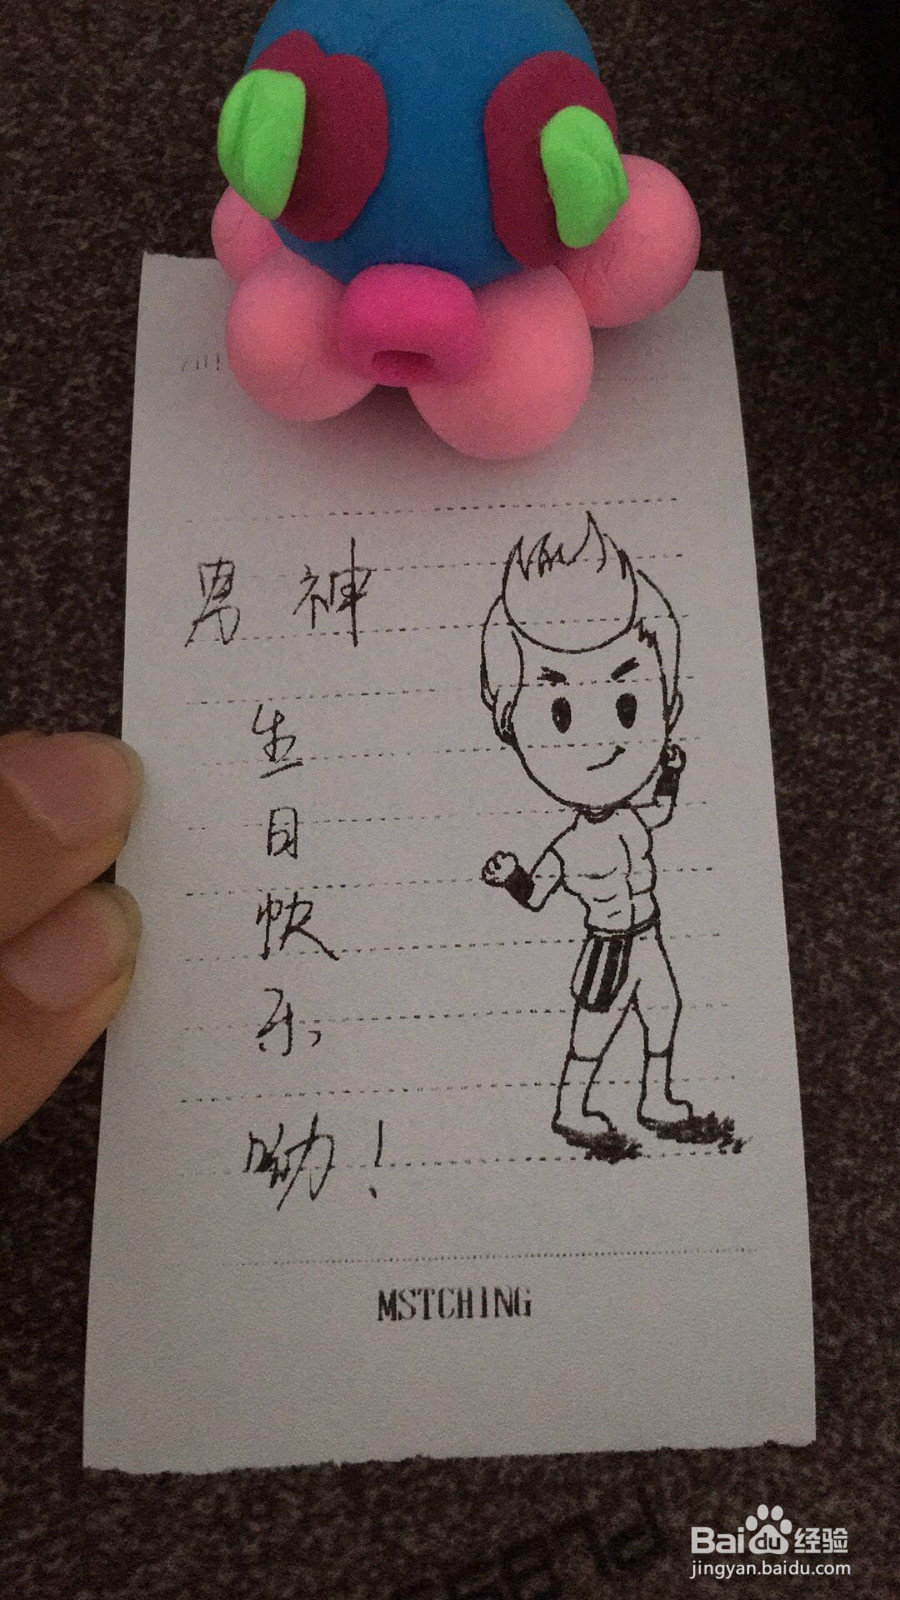 男神
生
日
快
乐
呦！
MSTCHING
Bai du 经验
jingyan.baidu.com